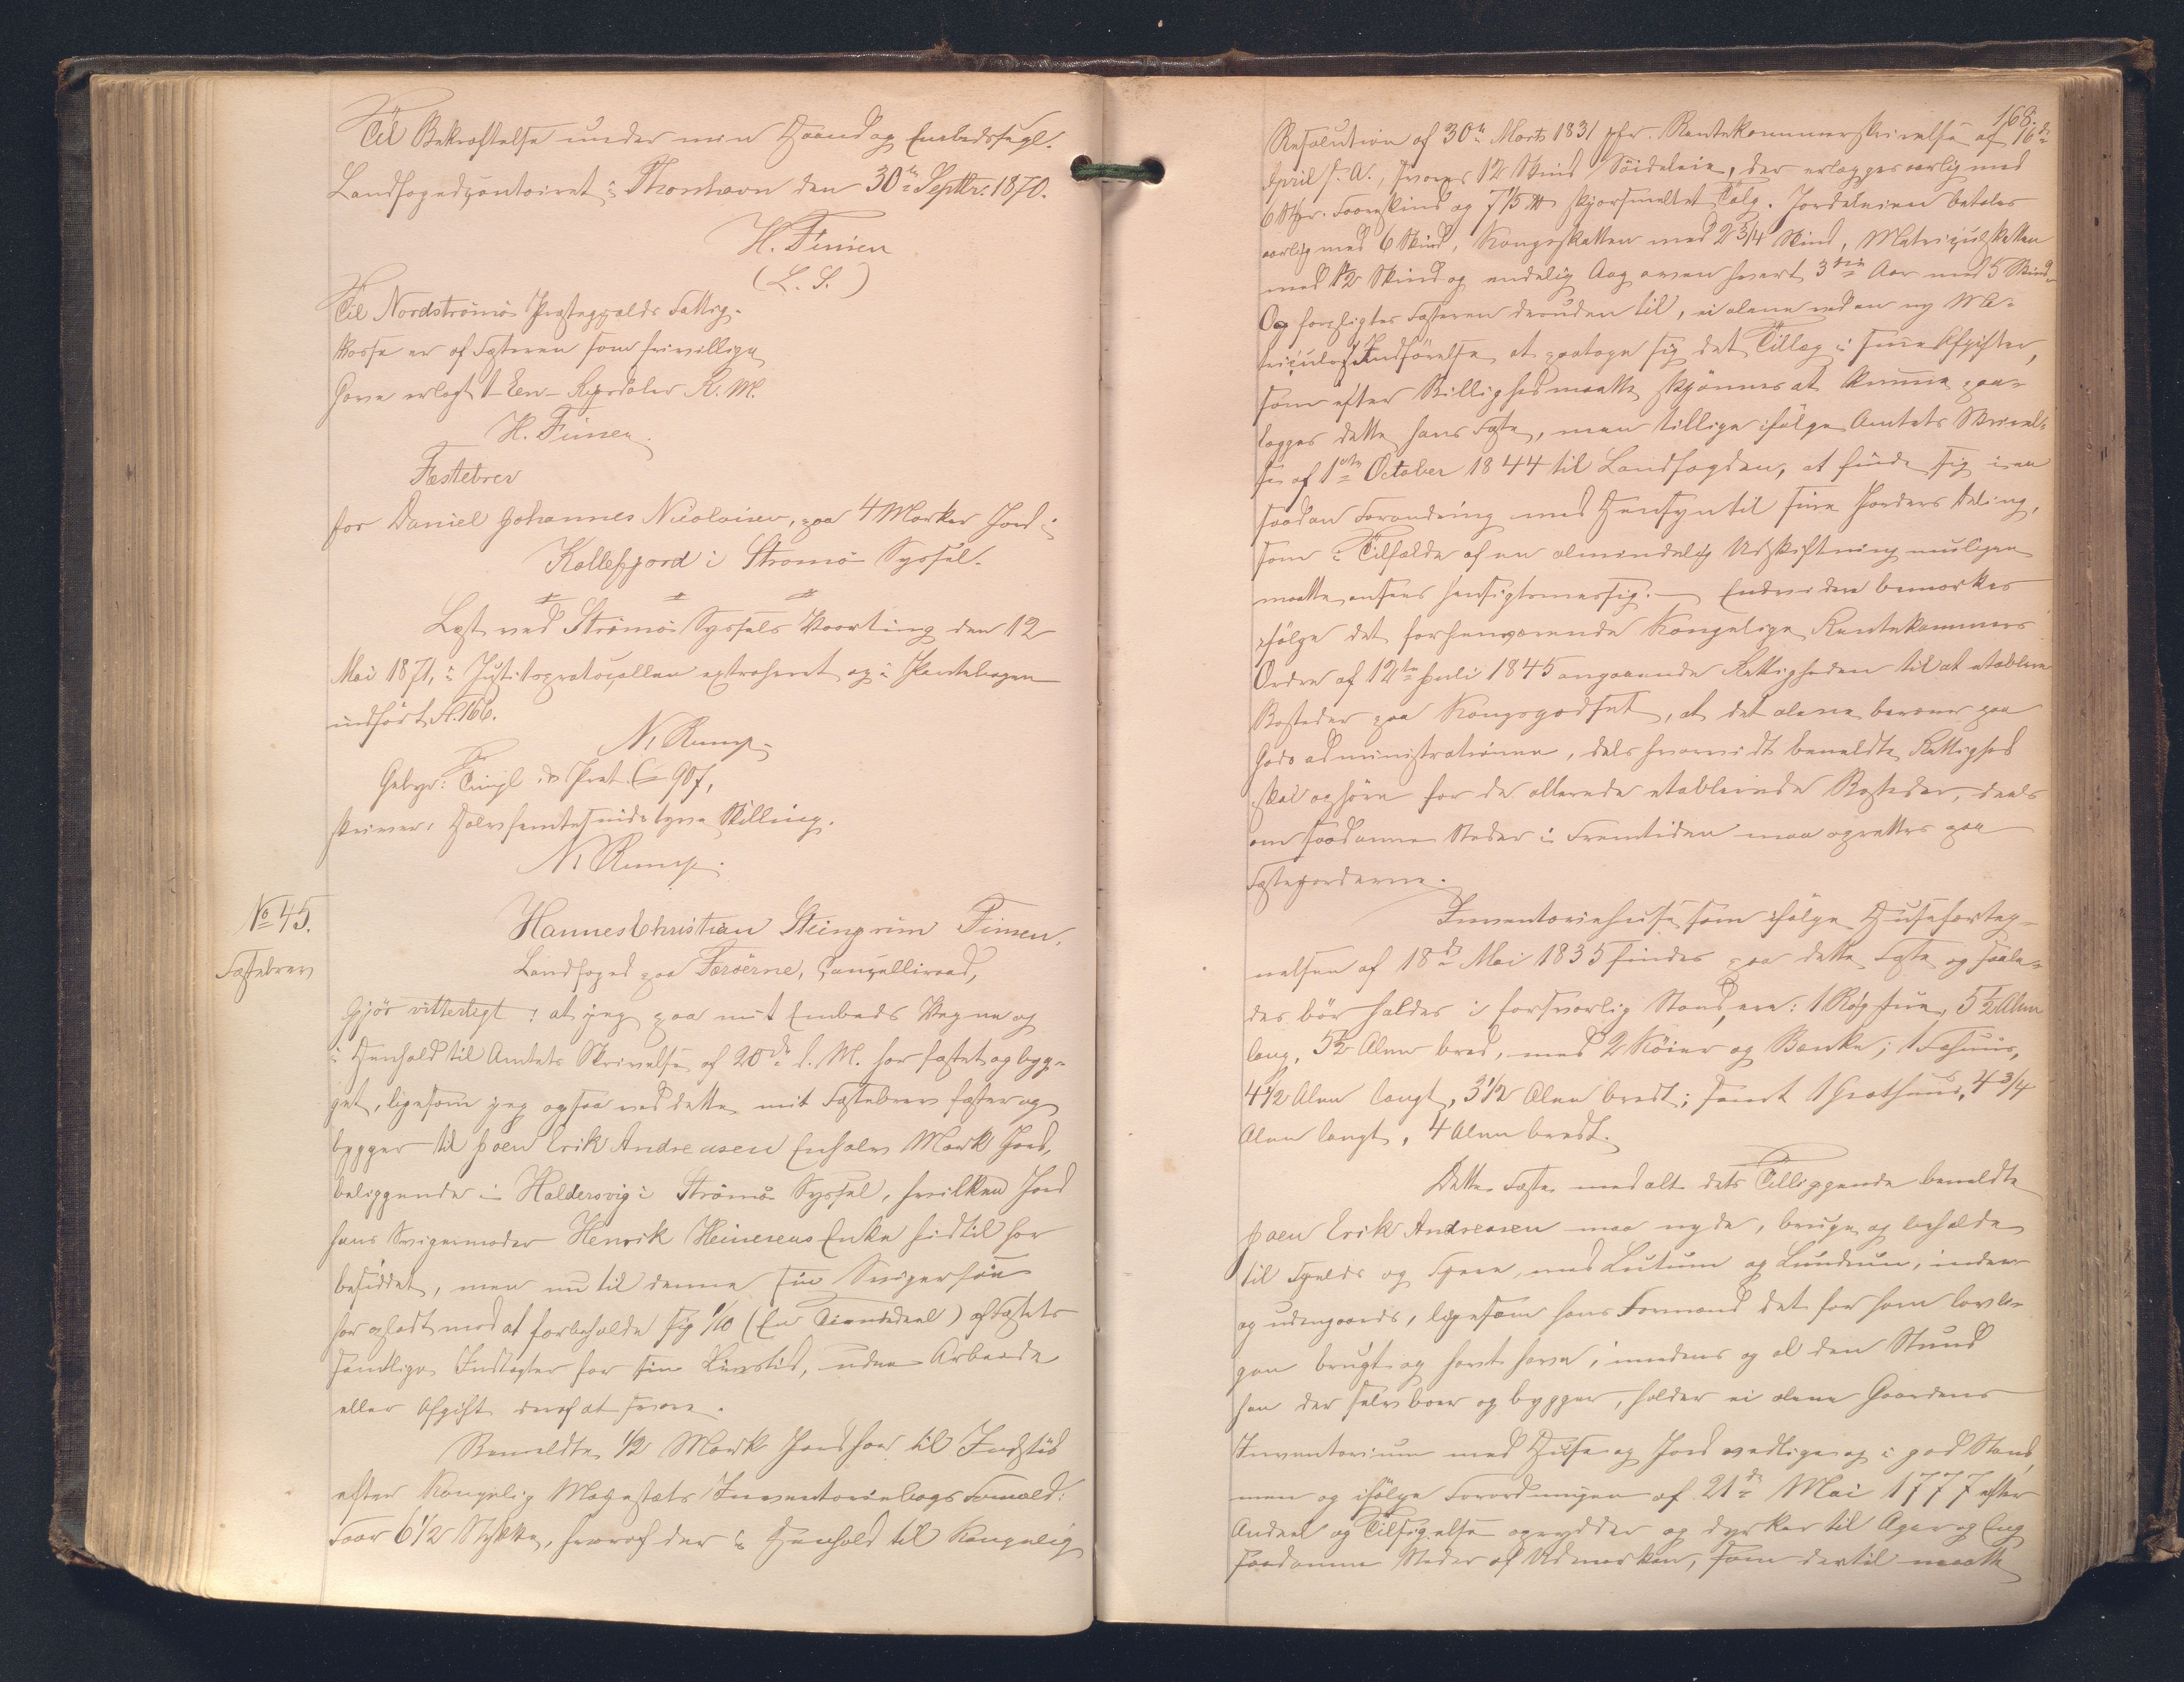 Til Bekræftelse under min Haand og Embedssegl.
Landfogedcontoiret i Thorshavn den 30te Septbr: 1870.
H. Finsen
(L. S.)
Til Nordströmö Præstegjælds Fattig-
kasse er af Fæsteren som frivillig
Gave erlagt 1 - Een - Rigsdaler R. M.
H. Finsen.
Fæstebrev
for Daniel Johannes Nicolaisen, paa 4 Marker Jord i
Kollefjord i Strømø Syssel.
Læst ved Strömö Syssels Vaarting den 12
Mai 1871, i Justitsprotocollen extraheret og i Pantebogen
indfört Fl. 166.
N. Rump.
Gebyr: Tingl. & Prot. 907,
skriver: Halvfemtesindstyve Skilling.
N. Rump.
No 45.
Fæstebrev
Hannes Christian Steingrim Finsen,
Landfoged paa Færöerne, Cancelliraad,
Gjör vitterligt: at jeg paa mit Embeds Vegne og
i Henhold til Amtets Skrivelse af 20de d. M. har fæstet og byg-
get, ligesom jeg ogsaa ved dette mit Fæstebrev fæster og
bygger til Joen Erik Andreasen Enhalv Mark Jord,
beliggende i Haldersvig i Strömö Syssel, hvilken Jord
hans Svigermoder Henrik Heinesens Enke hidtil har
besiddet, men nu til denne sin Svigersön
har opladt mod at forbeholde sig 1/10 (En Tiendedeel) af Fæstets
samtlige Indtægter for sin Livstid, uden Arbeide
eller Afgift deraf at svare.
Bemeldte 1/2 Mark Jord har til Indstöd
efter Kongelig Majestæts Inventariebogs Formeld:
Faar 6 1/2 Stykke, hvoraf der i Henhold til Kongelig
168.
Resolution af 30te Marts 1831 jfr. Rentekammerskrivelse af 16de
April s. A., svares 12 Skind Söideleie, der erlægges aarlig med
6 Stkr. Faareskind og 7 1/5 ℔ skjærsmeltet Talg. Jordeleien betales
aarlig med 6 Skind, Kongeskatten med 2 3/4 Skind, Matriculskatten
med 1/2 Skind og endelig hvert 3die Aar med 5 Skind.
Og forpligtes Fæsteren desuden til, ei alene ved en ny Ma-
triculs Indförelse at paatage sig det Tillæg i sine Afgifter,
som efter Billighed maatte skjönnes at kunne paa-
lægges dette hans Fæste, men tillige ifölge Amtets Skrivel-
se af 1ste October 1844 til Landfogden, at finde sig i en
saadan Forandring med Hensyn til sine Jorders Deling,
som i Tilfælde af en almindelig Udskiftning muligen
maatte ansees hensigtsmæssig. — Endvidere bemærkes
ifölge det forhenværende Kongelige Rentekammers
Ordre af 12te Juli 1845 angaaende Rettigheden til at etablere
Bosteder paa Kongsgodset, at det alene beroer paa
Godsadministrationen, dels hvorvidt bemeldte Rettighed
skal ophöre for de allerede etablerede Bosteder, deels
om saadanne Steder i Fremtiden maa oprettes paa
Fæstejorderne.
Inventariehuse som ifölge Huseforteg-
nelsen af 18de Mai 1835 findes paa dette Fæste og saale-
des bör holdes i forsvarlig Stand, ere: 1 Rögstue, 5 1/2 Alen
lang, 5 1/2 Alen bred, med 2 Köier og Bænke; 1 Fæhuus,
4 1/2 Alen langt, 3 1/2 Alen bredt; samt 1 Grothuus, 4 3/4
Alen langt, 4 Alen bredt.
Dette Fæste med alt dets Tilliggende bemeldte
Joen Erik Andreasen maa nyde, bruge og beholde
til Fjelds og Fjære, med Lutum og Lundum, inden-
og udengaards, ligesom hans Formand det för ham lovli-
gen brugt og havt haver, imedens og al den Stund
han der selv boer og bygger, holder ei alene Gaardens
Inventarium med Huse og Jord vedlige og i god Stand,
men og ifölge Forordningen af 21de Mai 1777 efter
Andeel og Tilsigelse oprydder og dyrker til Ager og Eng
saadanne Steder af Udmarken, som dertil maatte